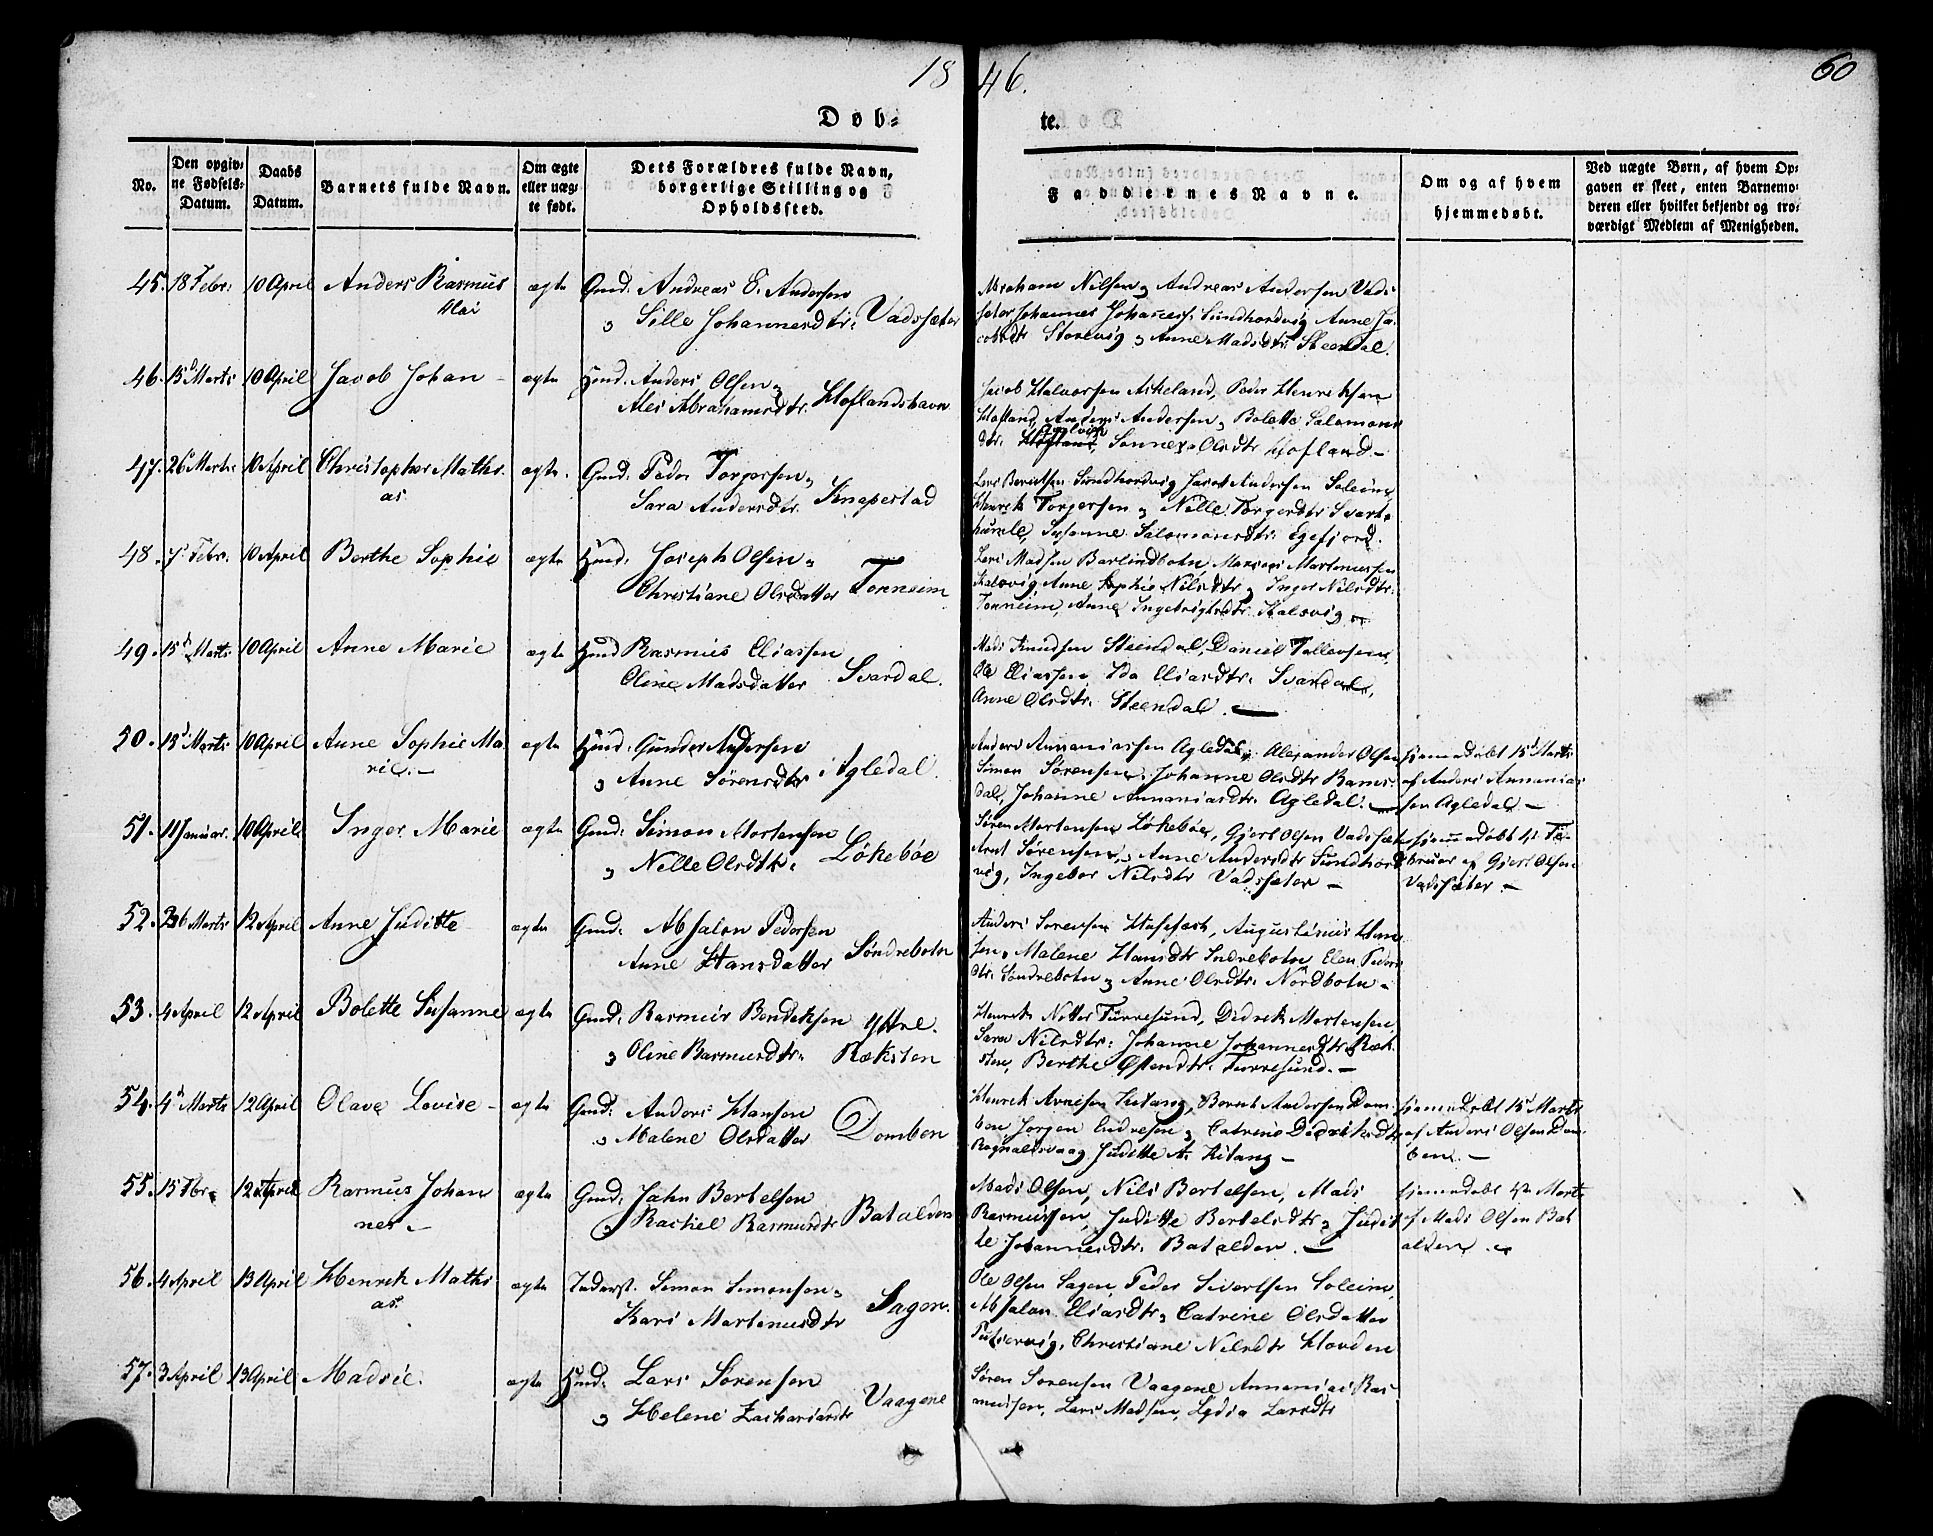 1846.
60
Døb-
te.
No.
Den opgiv-
ne Fødsels-
Datum.
Daabs
Datum.
Barnets fulde Navn.
Om ægte
eller uæg-
te født.
Dets Forældres fulde Navn,
borgerlige Stilling og
Opholdssted.
Faddernes Navne.
Om og af hvem
hjemmedøbt.
Ved uægte Børn, af hvem Op-
gaven er skeet, enten Barnemo-
deren eller hvilket bekjendt og tro-
værdigt Medlem af Menigheden.
45. 18 Febr. 10 April Anders Rasmus ægte Gmd. Andreas E. Andersen
Sille Johannesdtr. Vadsæter
Abraham Nilsen og Andreas Andersen Vads
sæter Johannes Johanness. Sundhordvig Anne Ja-
cobsdtr Storevig og Anne Madsdtr. Steendal.
46. 15d Marts 10 April Jacob Johan ægte Huusd. Anders Olsen og
Ales Abrahamsdtr. Hoflandshavn
Jacob Halvorsen Askeland, Peder Henriksen
Hofland, Anders Andersen, Bolette Salomons
dtr. Sonneve Olsdtr Hofland
47. 26 Marts 10 April Christopher Mathi-
as. ægte. Gmd. Peder Torgersen og
Sara Andersdtr. Knapestad
Lars Berentsen Sundhordvig Jacob Andersen Soleim,
Henrik Torgersen og Nille Torgersdtr Svart-
humle, Susanne Salomonsdtr. Egefjord.
48. 7d Febr. 10 April Berthe Sophie ægte Huusd. Joseph Olsen og
Christiane Olsdatter Tonneim
Lars Madsen Barlindbotn, Marcus Martinussen
Kalsvig Anne Sophie Nilsdtr og Inger Nilsdtr.
Tonneim, Anne Ingebrigtsdtr. Kalsvig
49. 15d Marts 10 April Anne Marie ægte Huusd Rasmus Eliassen
Oline Madsdatter Svardal.
Mads Knudsen Steendal, Daniel Tollevsen,
Ole Eliassen, Ida Eliasdtr. Svardal,
Anne Olsdtr. Steendal.
50. 13d Marts 10 April Anne Sophie Ma-
rie. ægte Huusd. Gunder Andersen
og Anne Sørensdtr Agledal.
Anders Annaniassen Agledal, Alexander Olsen
Simon Sørensen, Johanne Olsdtr Rams-
dal, Johanne Annaniasdtr. Agledal.
hjemmedøbt 15d Marts
af Anders Annanias-
sen Agledal.
51. 11 Januar. 10 April Inger Marie ægte Gmd. Simon Mortensen
og Nille Olsdtr. Løkebøe
Søren Mortensen Løkebøe, Gjert Olsen Vadsæter
Arnt Sørensen, Anne Andersdtr Sundhord-
vig, Ingebor Nilsdtr Vadsæter
hjemmedøbt 4de Fe-
bruar af Gjert Olsen
Vadsæter.
52. 26 Marts 12 April Anne Juditte ægte Gmd. Absalon Pedersen
Anne Hansdatter Søndrebotn
Anders Sørensen Husefæst, Augustinus Han-
sen, Malene Hansdtr Indrebotn, Elen Peders-
dtr. Søndrebotn og Anne Olsdtr. Nordbotn
53. 4 April 12 April Bolette Susanne ægte Gmd. Rasmus Bendiksen
og Oline Rasmusdtr. Yttre
Ræksten
Henrik Nitter Furresund, Didrik Mortensen,
Sara Nilsdtr. Johanne Johannesdtr. Ræk-
sten, Berthe Østensdtr. Furresund.
54. 4d Marts 12 April Olave Lovise ægte Gmd. Anders Hansen
og Malene Olsdatter Domben
Henrik Arnesen Hitang, Bernt Andersen Dom-
ben Jørgen Endresen og Catrine Didriksdtr
Rognaldsvaag Juditte A. Hitang
hjemmedøbt 15d Marts
af Anders Olsen Dom-
ben.
55. 15 Fbr. 12 April Rasmus Johan-
nes ægte Gmd. John Bertelsen
og Rachel Rasmusdtr Batalden
Mads Olsen, Nils Bertelsen, Mads
Rasmussen, Juditte Bertelsdtr og Judit-
te Johannesdtr. Batalden.
hjemmedøbt 4de Marts
af Mads Olsen Bat-
alden.
56. 4 April 13 April Henrik Mathi-
as. ægte Inderst. Simon Simonsen og
Kari Martinusdtr Sagen.
Ole Olsen Sagen, Peder Sivertsen Soleim,
Absalon Eliasdtr, Catrine Olsdatter
Christiane Nilsdtr Hovden
57. 3 April 13 April Madsie. ægte Huusd. Lars Sørensen
og Helene Zachariasdtr Vaagene
Søren Sørensen Vaagene Annanias Ras-
mussen, Lars Madsen, Lydia Larsdtr